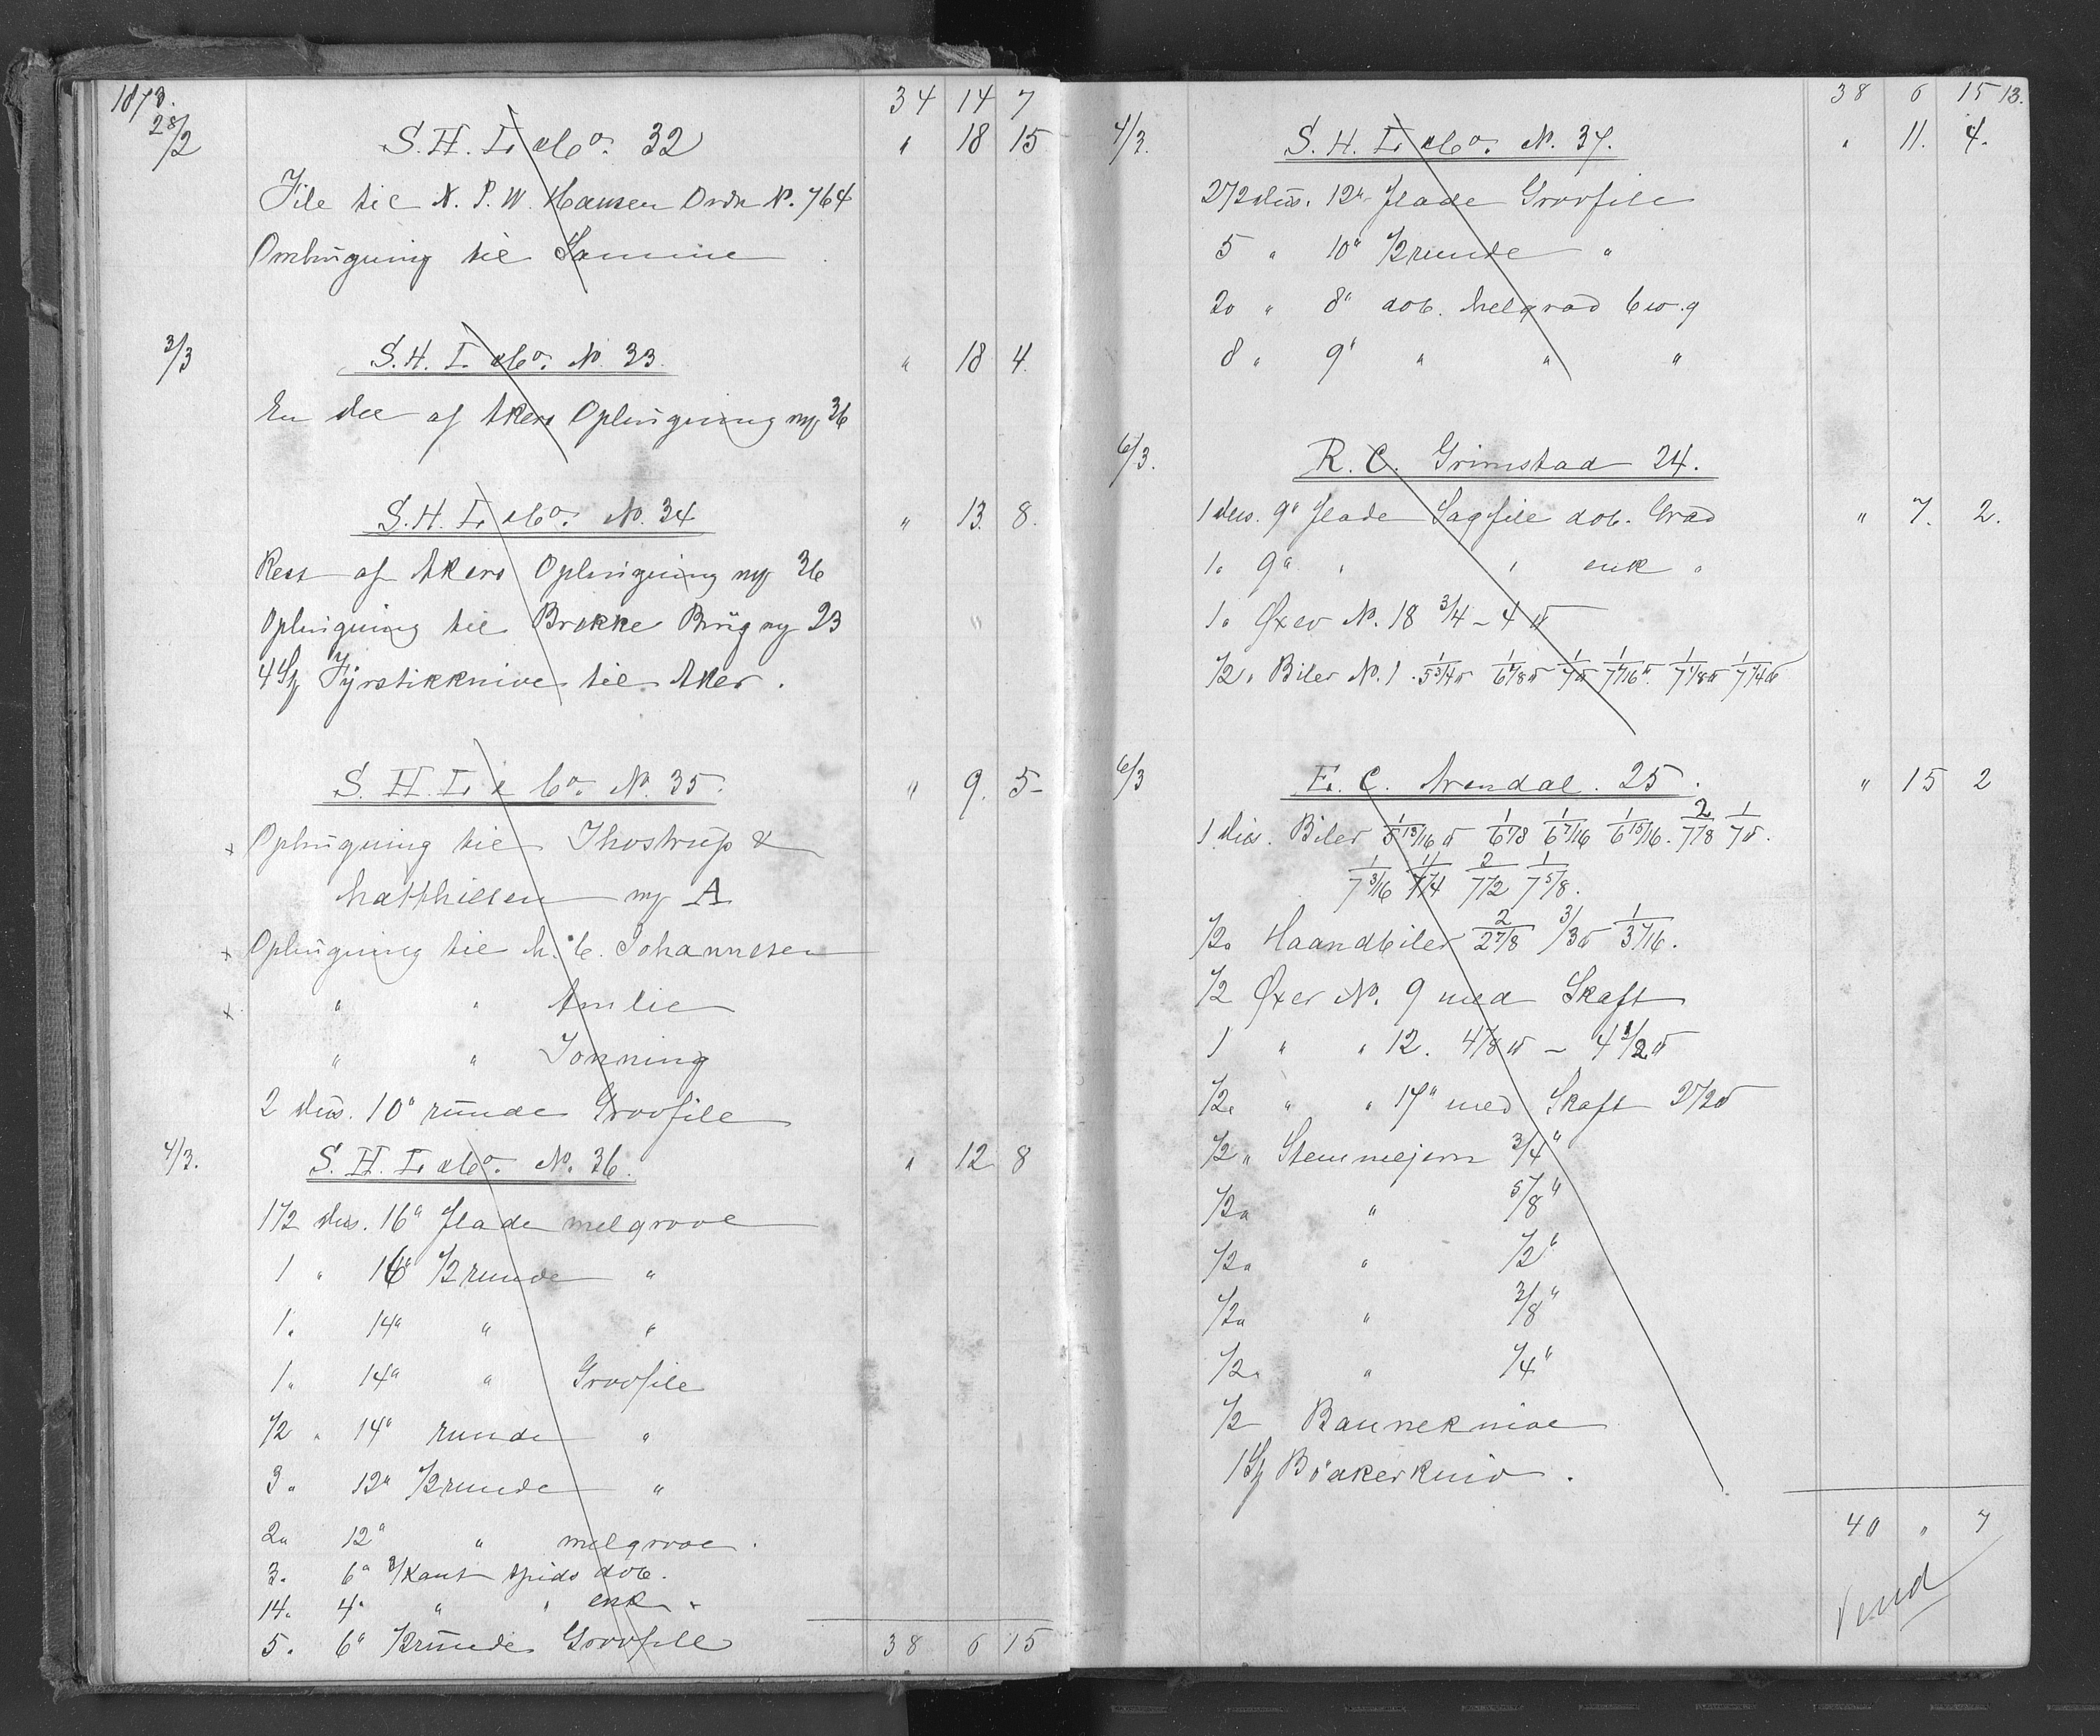 1873. 34 14 7
28/2 S. H. L. & Co. 32 " 18 15
File til N. P. W. Hansen Ordn No. 764
Omhugning til Samme
3/3 S. H. L. & Co. No. 33. " 18 4.
En del af Akers Ophugning mrk 36
S. H. L. & Co. No. 34 " 13. 8.
Rest af Akers Ophugning mrk 36
Ophugning til Brekke Brug mrk 23
4 St Fyrstikknive til Aker.
S. H. L. & Co. No. 35. " 9. 5
x Ophugning til Thostrup &
Matthiesen mrk A
x Ophugning til M. C. Johannesen
x " " Amlie
" " Jonning
2 dus. 10" runde Groofile
4/3. S. H. L. & Co. No. 36. " 12 8
1 1/2 dus. 16" flade melgrove
1 " 16" 1/2 runde "
1 " 14" " "
1 " 14" " Groofile
1/2 " 14" runde "
3 " 12" 1/2 runde "
2 " 12" " melgrove.
3 " 6" 3/kant spids dob.
14 " 4" " " enk "
5 " 6" 1/2 runde Groofile 38 6 15
38 6 15 13.
4/3. S. H. L. & Co. No. 37. " 11. 4.
2 1/2 dus. 12" flade Groofile
5 " 10" 1/2 runde "
20 " 8" dob. melgrad
8 " 9" " " "
6/3. R. C. Grimstad 24.
1 dus. 9" flade Sagfile dob. Grad " 7. 2.
1 " 9" " " enk "
1 " Øxer No. 18 3/4 – 4 ℔
1/2 " Biler No. 1 1/5 3/4 ℔ 1/6 7/8 ℔ 1/7 ℔ 1/7 1/16 ℔ 1/7 1/8 ℔ 1/7 1/4 ℔
6/3 E. C. Arendal. 25. " 15 2
1 dus. Biler 1/5 13/16 ℔ 1/6 7/8 1/6 7/16 1/6 15/16. 2/7 1/8 1/7 ℔.
1/7 3/16 1/7 1/4 2/7 1/2 1/7 5/8.
1/2 " Haandbiler 2/2 7/8 3/3 ℔ 1/3 1/16.
1/2 Øxer No. 9 med Skaft
1 " " 12. 4 1/8 ℔ – 4 1/2 ℔
1/2 " " " 17" med Skaft 2 1/2 ℔
1/2 " Stemmejern 3/4"
1/2 " " 5/8"
1/2 " " 1/2"
1/2 " " 3/8"
1/2 " " 1/4"
1/2 Bauneknive
1 St Bödkerkniv.
40 " 7
Vend